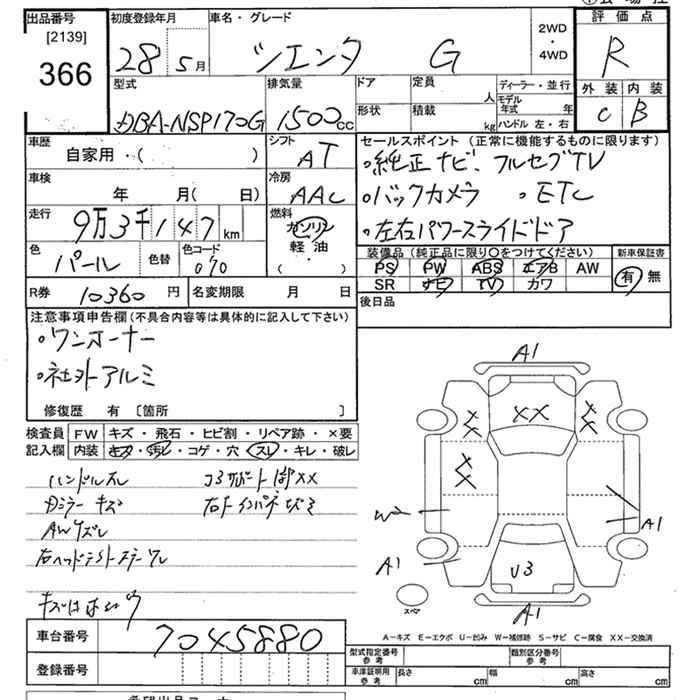 出品番号
[2139]
366
初度登録年月
28 5月
車名・グレード
シエンタ G
2WD
・
4WD
評価点
R
外装 内装
C B
型式
DBA-NSP170G
排気量
1500cc
ドア
定員
人
形状
積載
kg
ディーラー・並行
モデル年式 年
ハンドル 左・右
車歴
自家用・( )
シフト
AT
車検
年 月( 日)
冷房
AAC
走行
9万3千147km
燃料
ガソリン
軽油
( ・ )
色
パール
色替
色コード
070
R券 10360円
名変期限 月 日
セールスポイント (正常に機能するものに限ります)
・純正ナビ、フルセグTV
・バックカメラ ・ETC
・左右パワースライドドア
装備品 (純正品に限り○をつけてください)
新車保証書
PS PW ABS エアB AW
SR ナビ TV カワ
有 無
後日品
注意事項申告欄(不具合内容等は具体的に記入して下さい)
・ワンオーナー
・社外アルミ
修復歴 有 [箇所 ]
検査員
記入欄
FW キズ・飛石・ヒビ割・リペア跡・×要
内装 キズ・汚レ・コゲ・穴・スレ・キレ・破レ
ハンドルスレ
ミラー キズ
AWズレ
A1
XX
XX
XX
XX
W2
A1
A1
U3
A1
スペア
A-キズ E-エクボ U-凹み W-補修跡 S-サビ C-腐食 XX-交換済
車台番号 7045880
登録番号
型式指定番号
参考
類別区分番号
参考
車庫証明用
参考
長さ cm
幅 cm
高さ cm